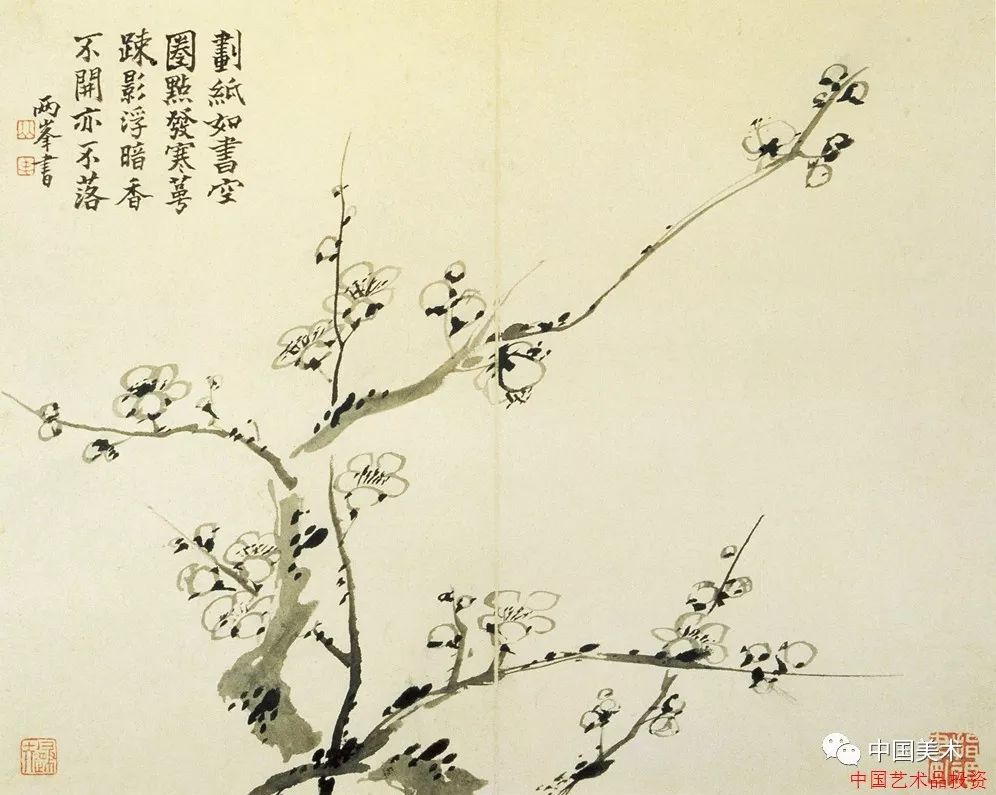 劃紙如書空
圈點發寒萼
踈影浮暗香
不開亦不落
兩峯書
中国美术
中国艺术品投资